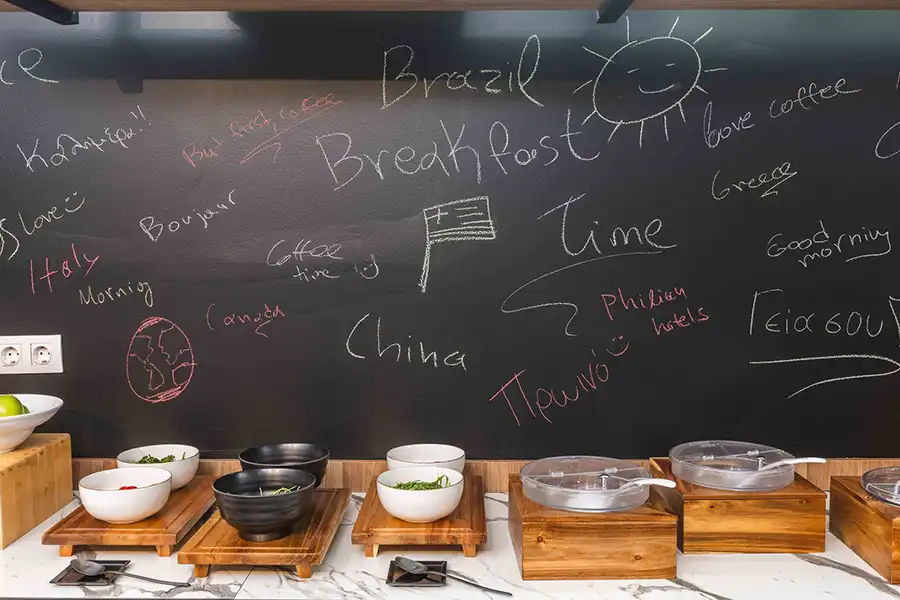 Brazil
Καλημέρα!!
But first, coffee
Breakfast
love coffee
Greece
love
Bonjour
Time
Good
morning
Italy
Coffee
time
Morning
Canada
Philian
hotels
Γεια σου
China
Πρωινό